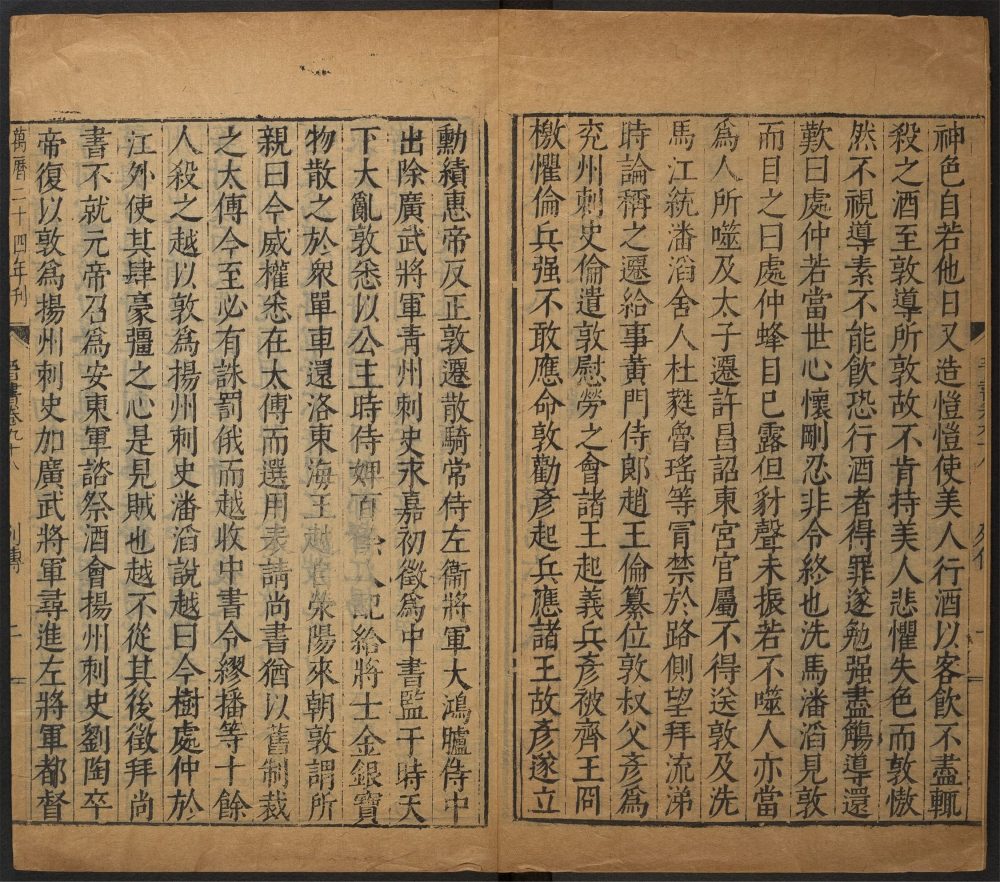 神色自若他日又造愷愷使美人行酒以客飲不盡輒
殺之酒至敦導所敦故不肯持美人悲懼失色而敦慠
然不視導素不能飲恐行酒者得罪遂勉强盡觴導還
歎曰處仲若當世心懷剛忍非令終也洗馬潘滔見敦
而目之曰處仲蜂目已露但豺聲未振若不噬人亦當
爲人所噬及太子遷許昌詔東宮官屬不得送敦及洗
馬江統潘滔舍人杜蕤魯瑤等冐禁於路側望拜流涕
時論稱之遷給事黃門侍郎趙王倫纂位敦叔父彥爲
兖州刺史倫遣敦慰勞之會諸王起義兵彥被齊王冏
檄懼倫兵强不敢應命敦勸彥起兵應諸王故彥遂立
勳績惠帝反正敦遷散騎常侍左衞將軍大鴻臚侍中
出除廣武將軍青州刺史永嘉初徵爲中書監于時天
下大亂敦悉以公主時侍婢百人配給將士金銀寶
物散之於衆單車還洛東海王越滎陽來朝敦謂所
親曰今威權悉在太傅而選用表請尚書猶以舊制裁
之太傅今至必有誅罰俄而越收中書令繆播等十餘
人殺之越以敦爲揚州刺史潘滔說越曰今樹處仲於
江外使其肆豪彊之心是見賊也越不從其後徵拜尚
書不就元帝召爲安東軍諮祭酒會揚州刺史劉陶卒
帝復以敦爲揚州刺史加廣武將軍尋進左將軍都督
萬曆二十四年刊
晉書卷九十八
列傳
二